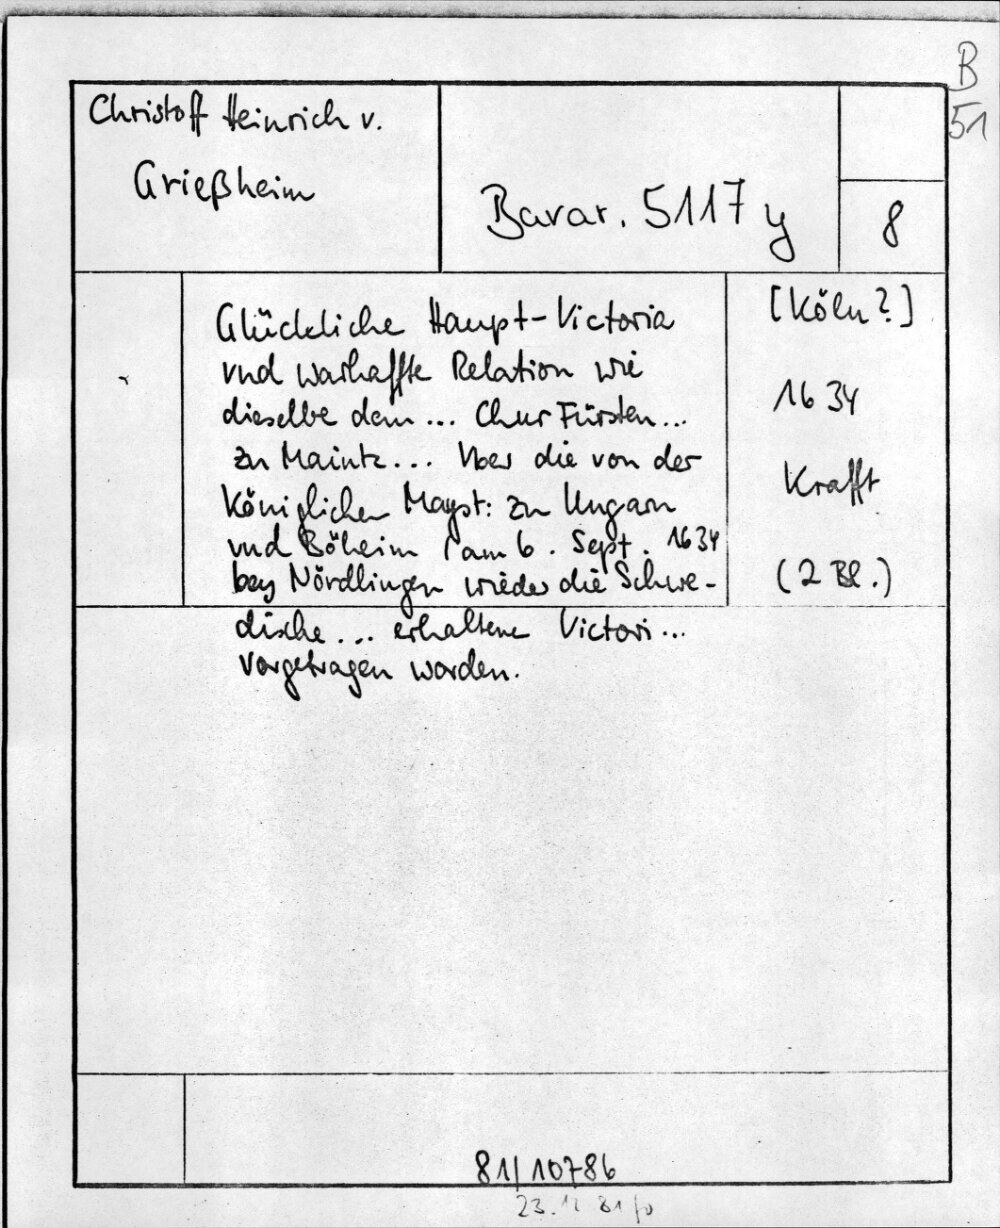 B
51
Christoff Heinrich v.
Grießheim
Bavar. 5117 y
8
Glückliche Haupt-Victoria
vnd warhaffte Relation wie
dieselbe dem ... ChurFürsten ...
zu Maintz ... Vber die von der
Königlichen Mayst: zu Ungarn
vnd Böheim / am 6. Sept. 1634
bey Nördlingen wieder die Schwe-
dische ... erhaltene Victori ...
vorgetragen worden.
[Köln?]
1634
Krafft
(2 Bl.)
81/10786
23.12 81